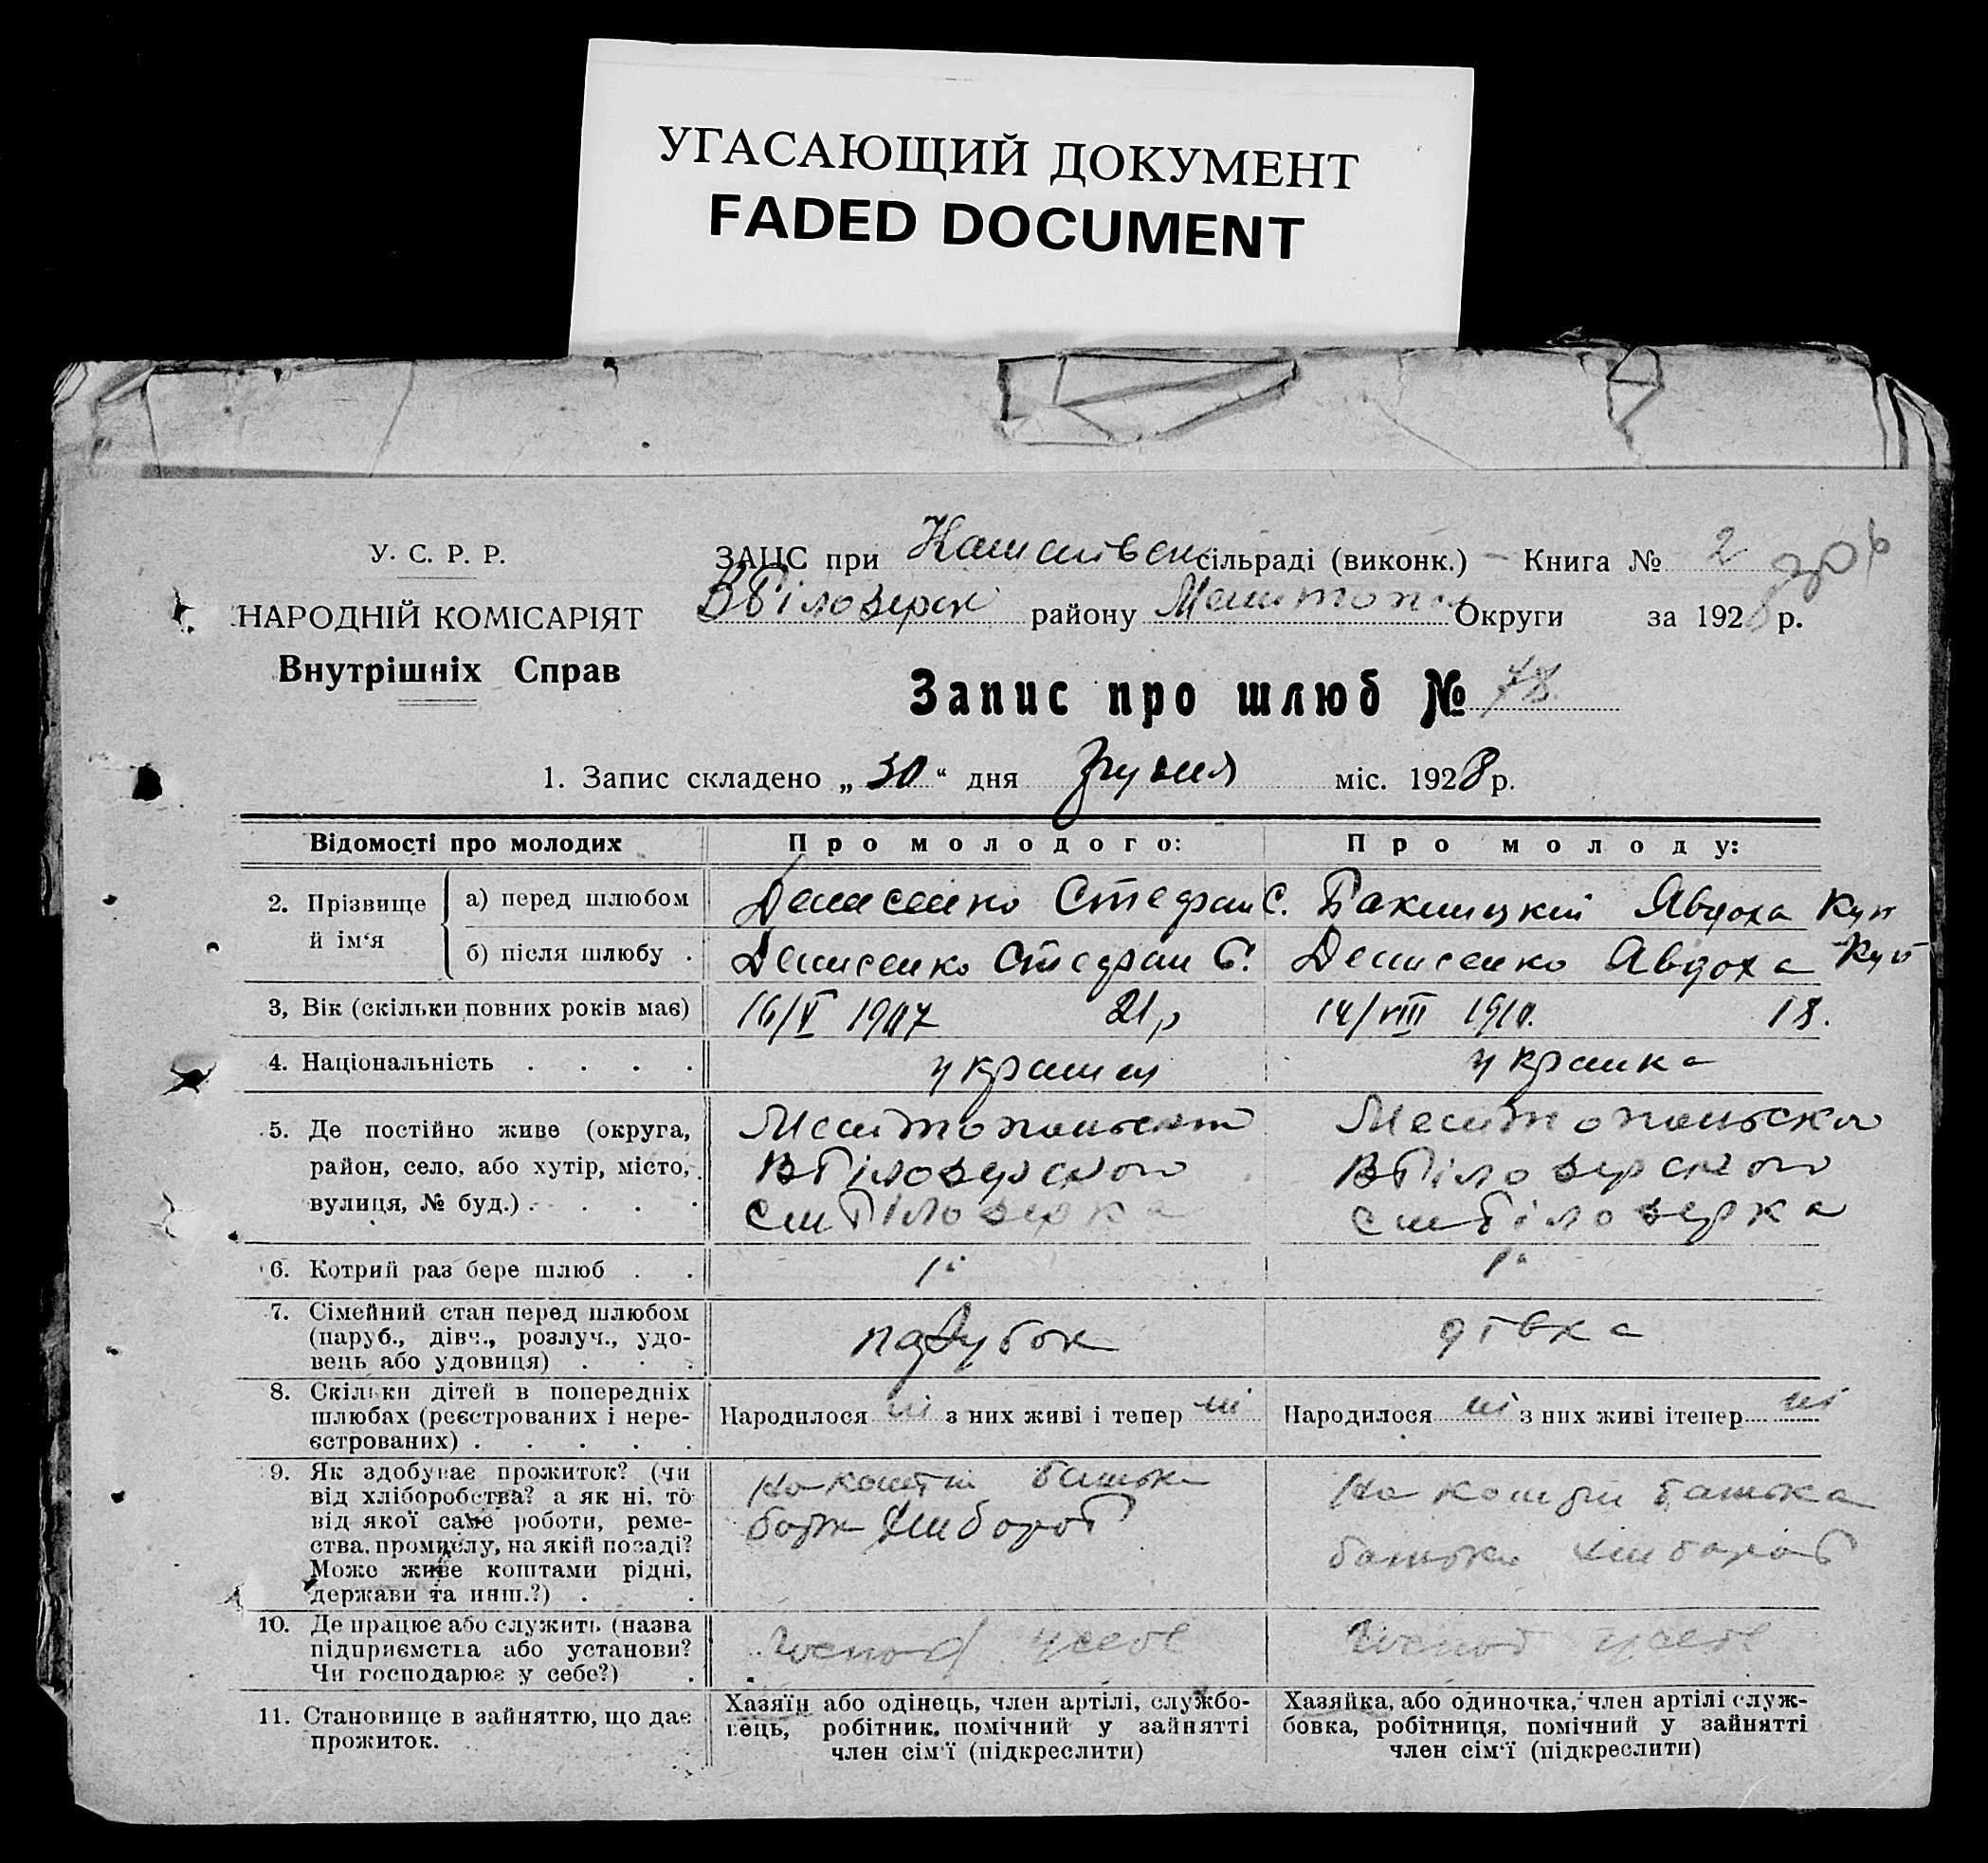 УГАСАЮЩИЙ ДОКУМЕНТ
FADED DOCUMENT
У. С. Р. Р.
НАРОДНІЙ КОМІСАРІЯТ
Внутрішніх Справ
ЗАЦС при сільраді (виконк.) – Книга № 2
ВБілозерск району Мелитопол Округи за 1928 р.
Запис про шлюб № 78
1. Запис складено „ 30 “ дня грудня міс. 1928 р.
Відомості про молодих
Про молодого:
Про молоду:
2. Прізвище й ім‘я
а) перед шлюбом
Денисенко Стефан С.
Явдоха Куп
б) після шлюбу .
Денисенко Стефан С.
Денисенко Авдоха Куп
3, Вік (скільки повних років має)
16/V 1907 21 р
14/VIII 1910. 18.
4. Національність . . . .
україн
українка
5. Де постійно живе (округа,
район, село, або хутір, місто,
вулиця, № буд.) . . . .
Мелитопольск
ВБілозерскот
Білозерка
Мелитопольска
ВБілозерского
Білозерка
6. Котрий раз бере шлюб . .
1й
1й
7. Сімейний стан перед шлюбом
(паруб., дівч., розлуч., удо-
вець або удовиця) . . .
парубок
дівка
8. Скільки дітей в попередніх
шлюбах (реєстрованих і нере-
єстрованих) . . . . .
Народилося ні з них живі і тепер ні
Народилося ні з них живі ітепер ні
9. Як здобуває прожиток? (чи
від хліборобства? а як ні, то
від якої саме роботи, реме-
ства, промислу, на якій посаді?
Може живе коштами рідні,
держави та инш.?) . .
На кошти батька
хлібороб
На кошти батька
батько хлібороб
10. Де працює або служить (назва
підприємства або установи?
Чи господарює у себе?) .
Господ усебе
Господ усебе
11. Становище в зайняттю, що дає
прожиток.
Хазяїн або одінець, член артілі, службо-
вець, робітник, помічний у зайнятті
член сім‘ї (підкреслити)
Хазяйка, або одиночка, член артілі служ-
бовка, робітниця, помічний у зайнятті
член сім‘ї (підкреслити)